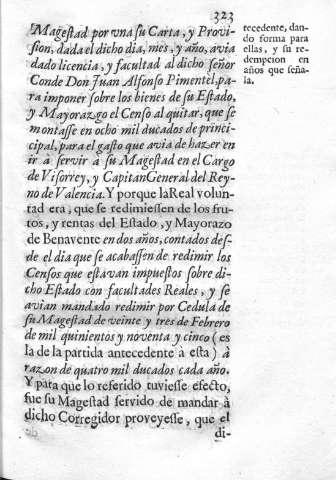 323
Magestad por vna su Carta, y Provi-
sion, dada el dicho dia, mes, y año, avia
dado licencia, y facultad al dicho señor
Conde Don Juan Alfonso Pimentel, pa-
ra imponer sobre los bienes de su Estado,
y Mayorazgo el Censo al quitar, que se
montasse en ocho mil ducados de princi-
cipal, para el gasto que avia de hazer en
ir à servir à su Magestad en el Cargo
de Visorrey, y Capitan General del Rey-
no de Valencia. Y porque la Real volun-
tad era, que se redimiessen de los fru-
tos, y rentas del Estado, y Mayorazo
de Benavente en dos años, contados des-
de el dia que se acabassen de redimir los
Censos que estavan impuestos sobre di-
cho Estado con facultades Reales, y se
avian mandado redimir por Cedula de
su Magestad de veinte y tres de Febrero
de mil quinientos y noventa y cinco (es
la de la partida antecedente à esta) à
razon de quatro mil ducados cada año.
Y para que lo referido tuviesse efecto,
fue su Magestad servido de mandar à
dicho Corregidor proveyesse, que el
di-
tecedente, dan-
do forma para
ellas, y su re-
dempcion en
años que seña-
la.